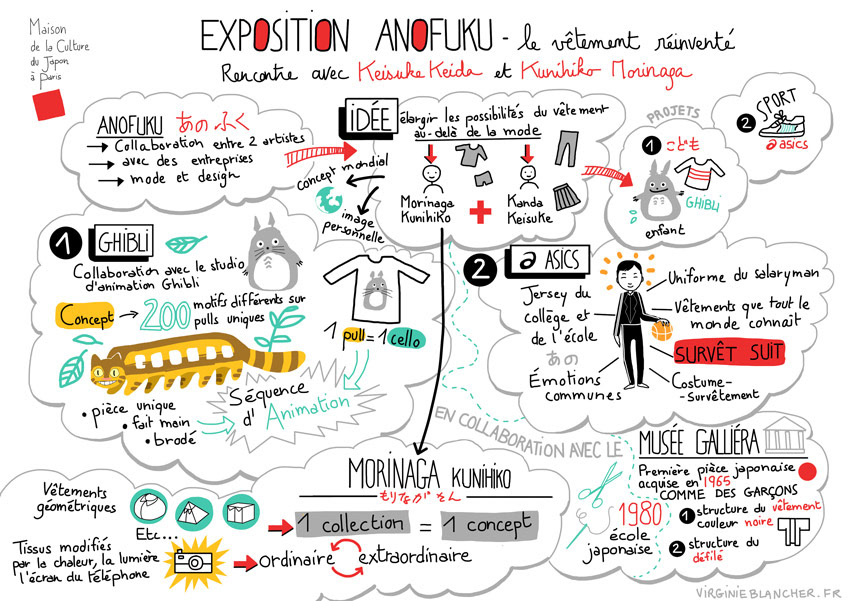 Maison
de la Culture
du Japon
à Paris
EXPOSITION ANOFUKU - le vêtement réinventé
Rencontre avec Keisuke Keida et Kunihiko Morinaga
ANOFUKU あのふく
Collaboration entre 2 artistes
avec des entreprises
mode et design
IDÉE
élargir les possibilités du vêtement
au-delà de la mode
concept mondial
image
personnelle
Morinaga
Kunihiko
+
Kanda
Keisuke
PROJETS
1 こども
GHIBLI
enfant
2 SPORT
asics
1 GHIBLI
Collaboration avec le studio
d'animation Ghibli
Concept → 200 motifs différents sur
pulls uniques
1 pull = 1 cello
• pièce unique
• fait main
• brodé
Séquence
d'Animation
2 ASICS
Jersey du
collège et
de l'école
あの
Émotions
communes
Uniforme du salaryman
Vêtements que tout le
monde connaît
SURVÊT SUIT
Costume-
-survêtement
EN COLLABORATION AVEC LE
MUSÉE GALLIÉRA
Première pièce japonaise
acquise en 1965
COMME DES GARÇONS
1980
école
japonaise
1 structure du vêtement
couleur noire
2 structure du
défilé
MORINAGA KUNIHIKO
もりながさん
1 collection = 1 concept
ordinaire extraordinaire
Vêtements
géométriques
Etc...
Tissus modifiés
par la chaleur, la lumière
l'écran du téléphone
VIRGINIEBLANCHER.FR